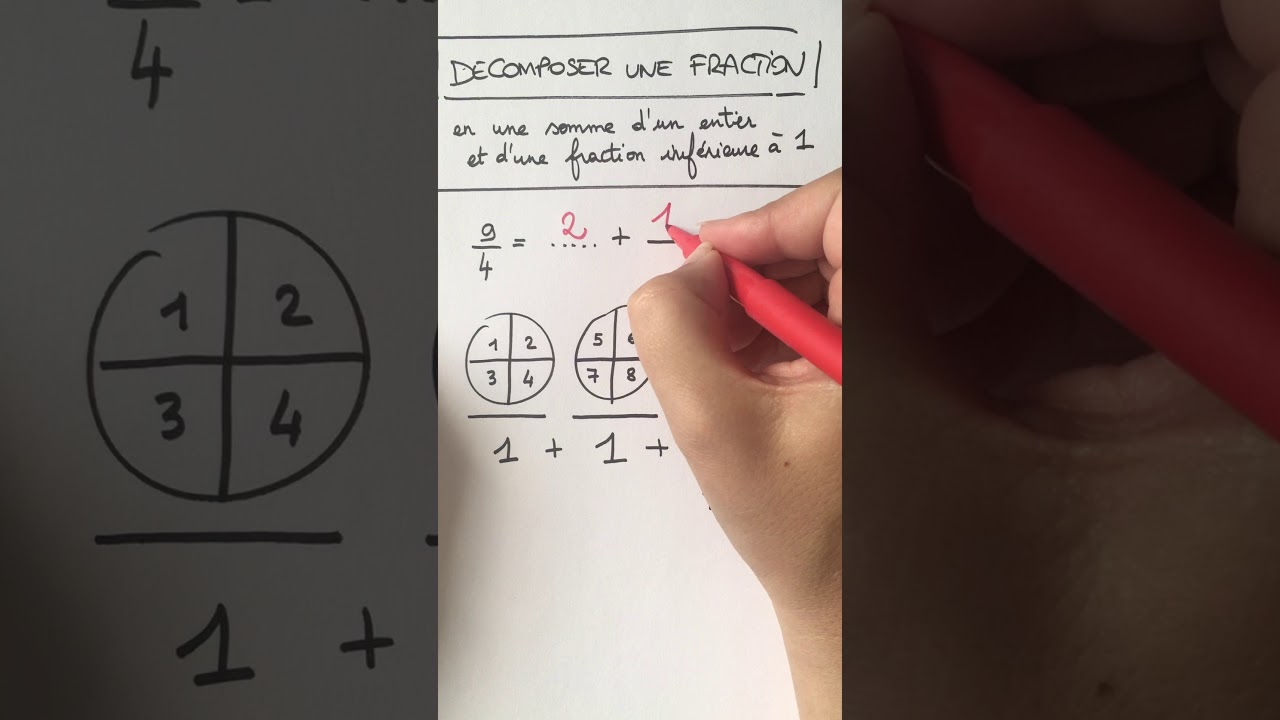 DECOMPOSER UNE FRACTION
en une somme d'un entier
et d'une fraction inférieure à 1
9/4 = 2 ..... + 1
1 2 5
3 4 7 8
1 + 1 +
4
1 2
3 4
1 +